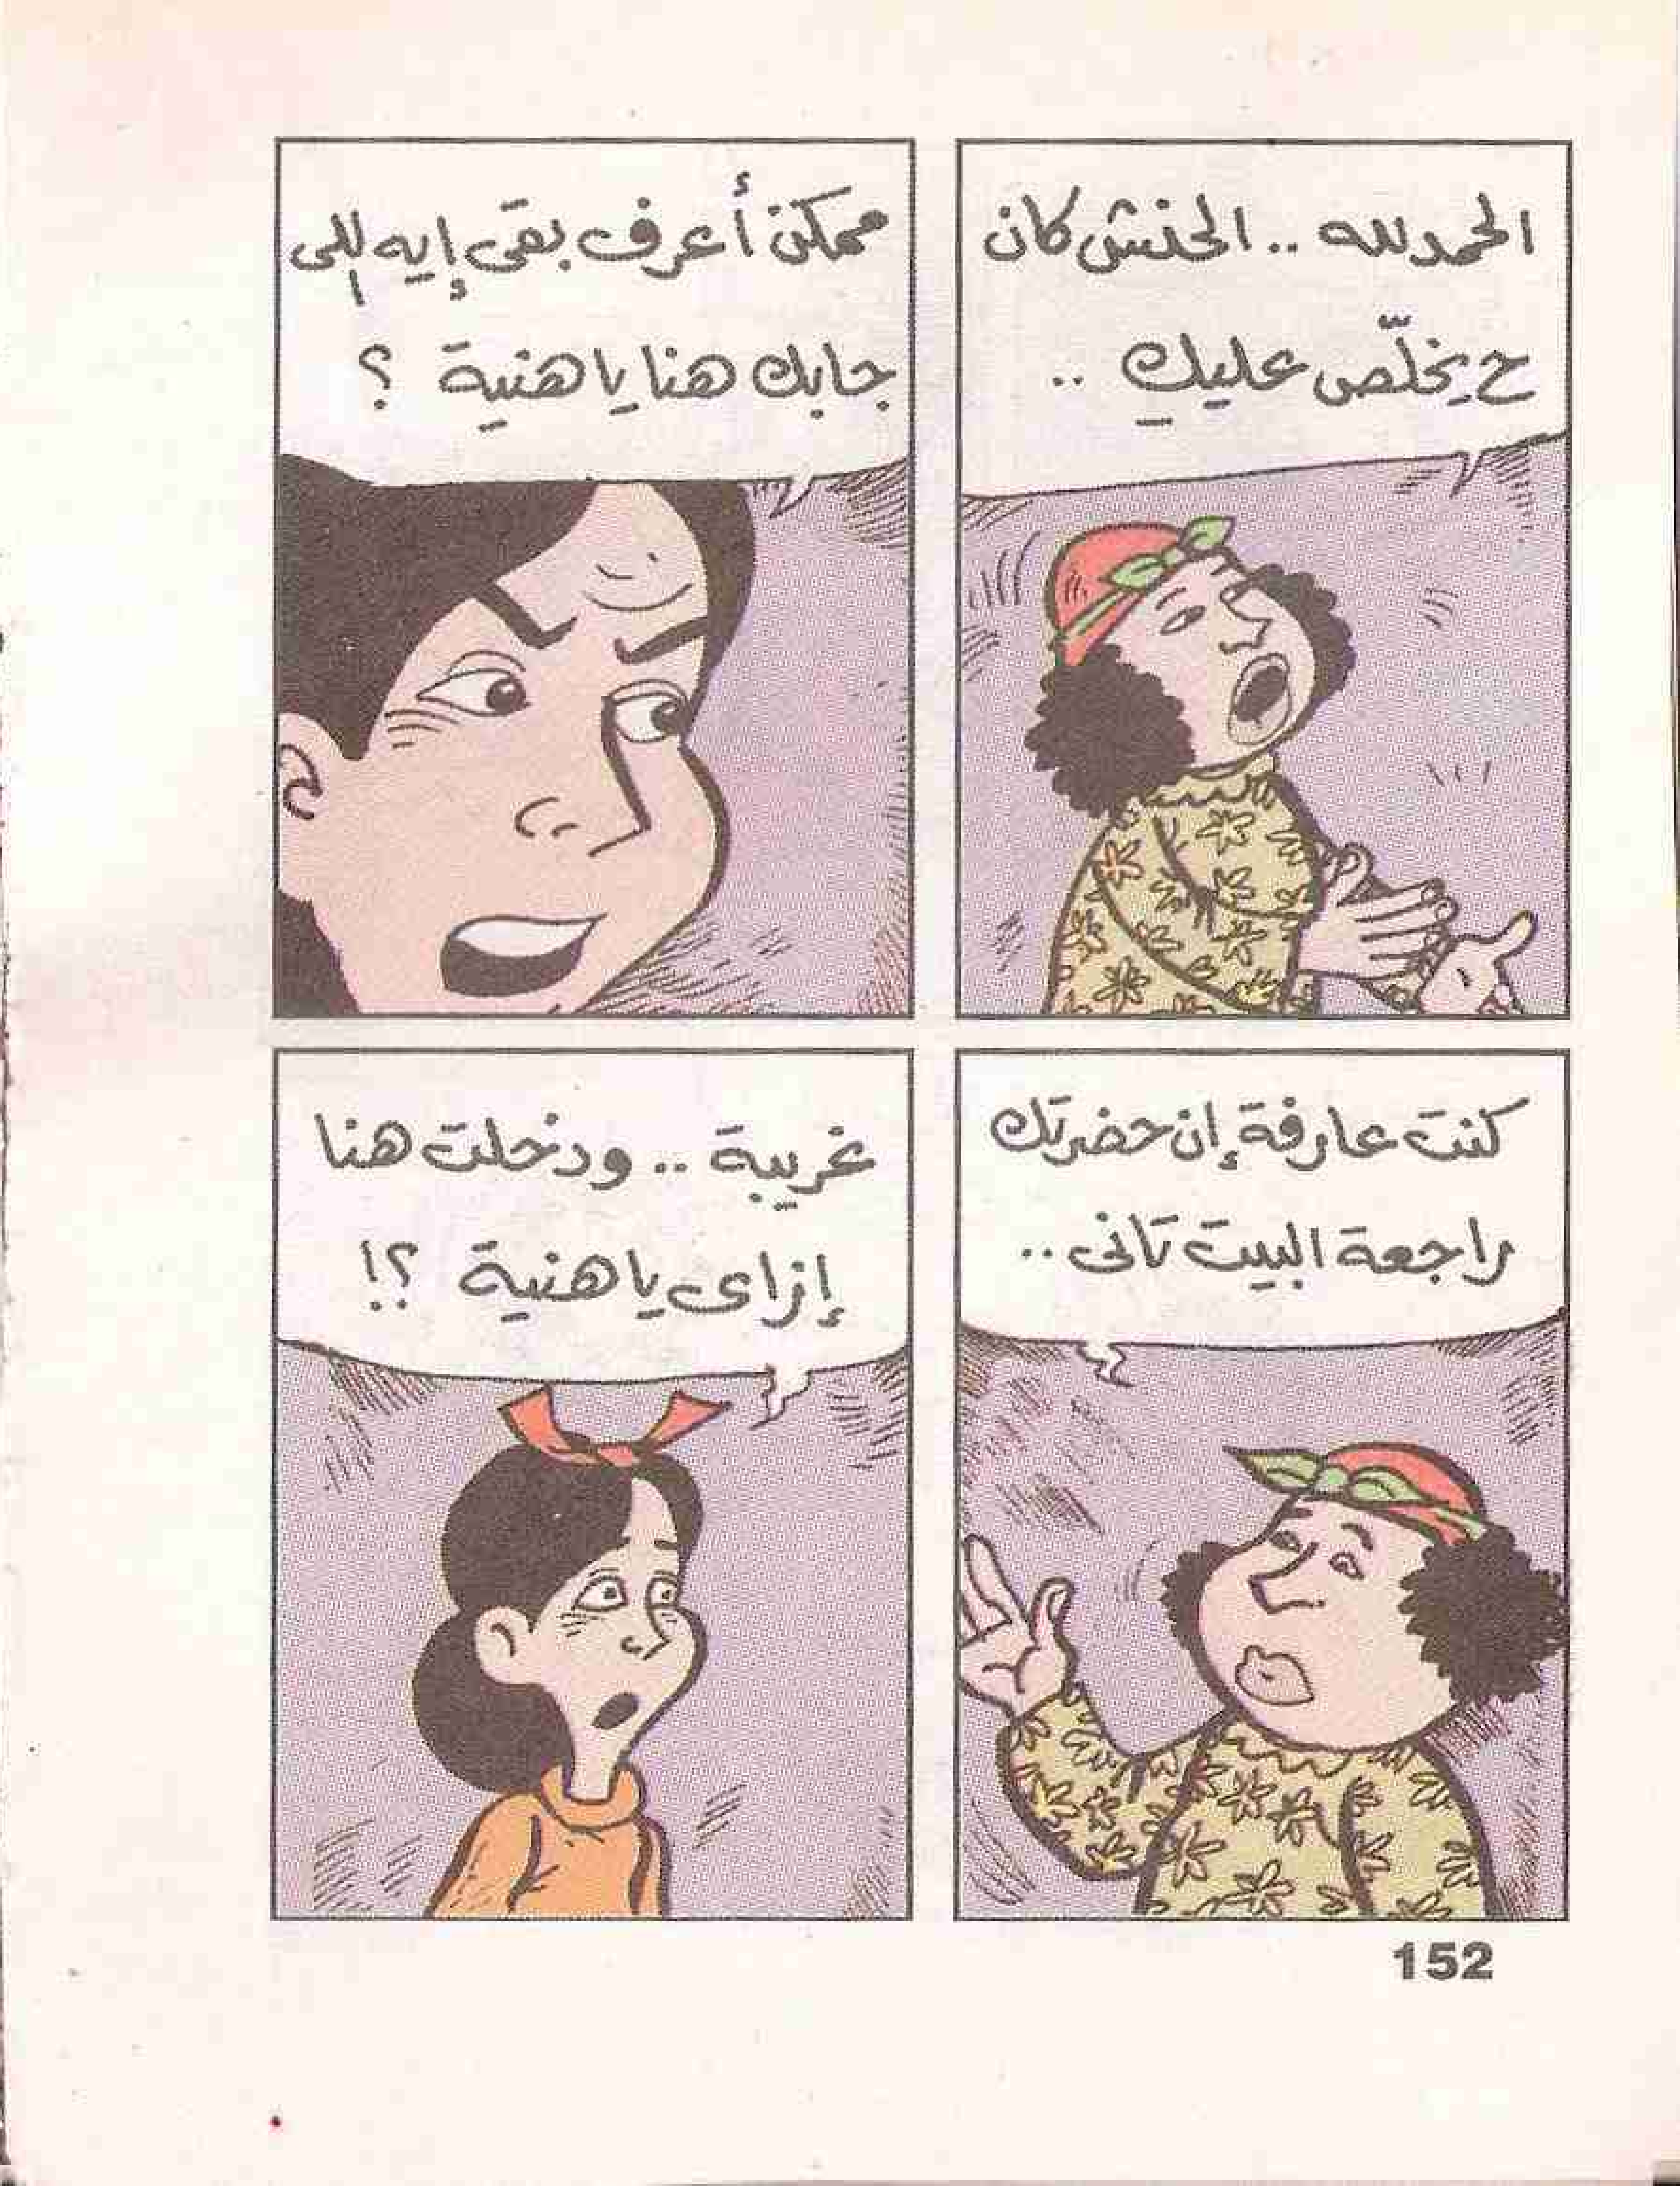 الحمد لله .. الحنش كان
ح يخلّص عليكِ ..
ممكن أعرف بقى إيه اللى
جابك هنا يا هنية ؟
كنت عارفة إن حضرتك
راجعة البيت تانى ..
غريبة .. ودخلت هنا
إزاى يا هنية ؟!
152